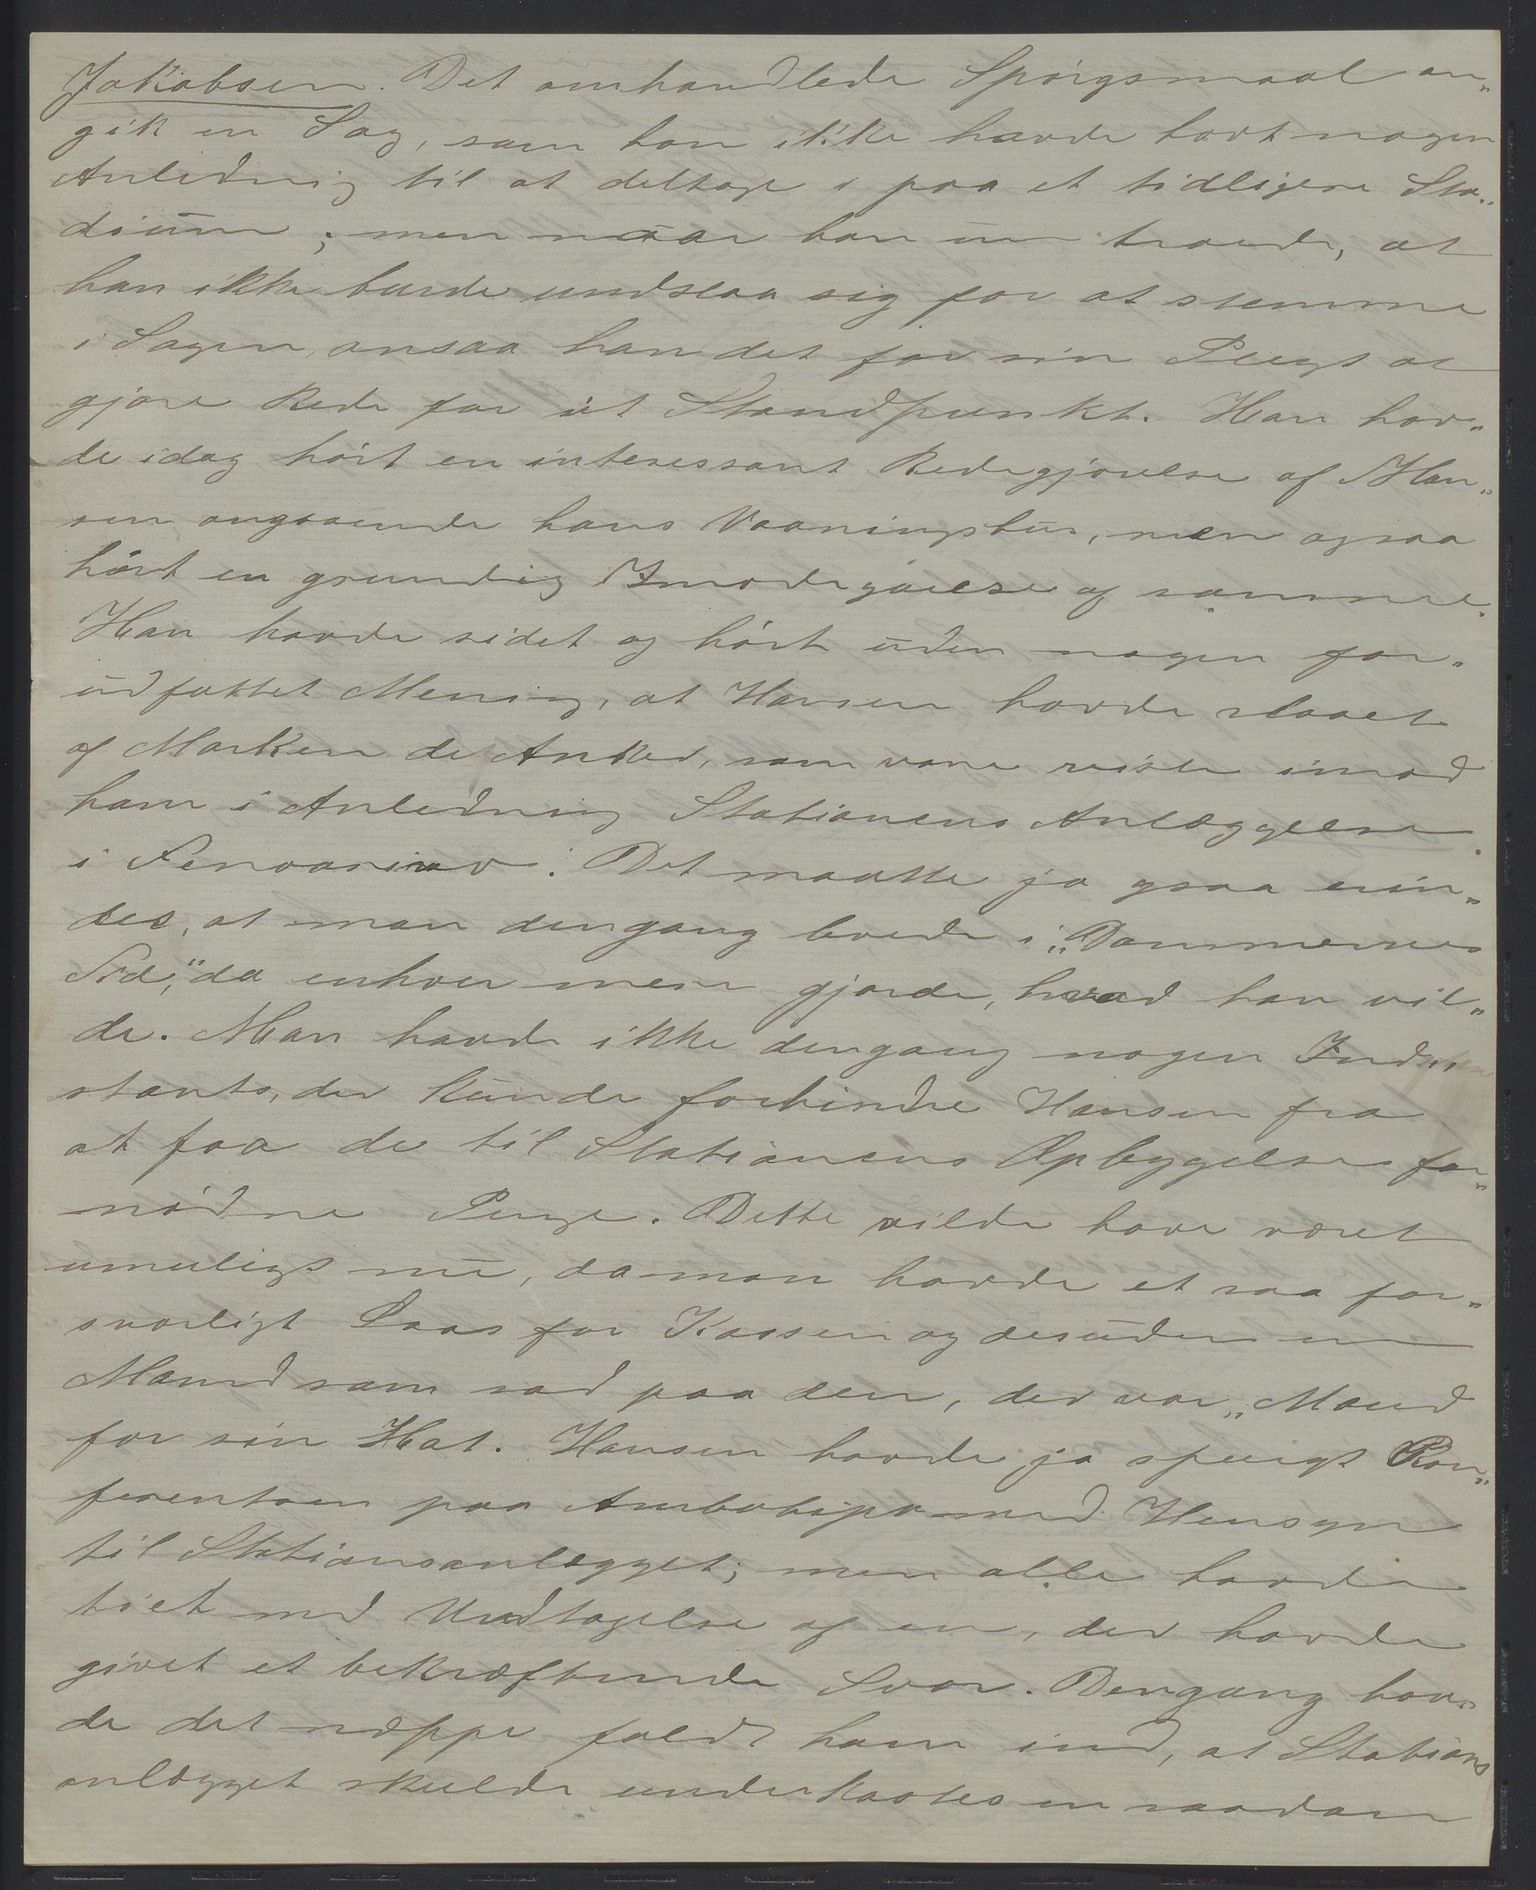 Jakobsen. Det omhandlede Spørgsmaal an„
gik en Sag, som han ikke havde havt nogen
Anledning til at deltage i paa et tidligere Sta„
dium; men naar han nu troede, at
han ikke burde undslaa sig for at stemme
i Sagen, ansaa han det for sin Pligt at
gjøre Rede for sit Standpunkt. Han hav„
de idag hørt en interessant Redegjørelse af Han„
sen angaaende hans Vaaningshus, men ogsaa
hørt en grundig Imødegaaelse af samme.
Han havde sidet og hørt uden nogen for„
udfattet Mening, at Hansen havde slaaet
af Marken de Anker, som vare reiste imod
ham i Anledning Stationens Anlæggelse
i Fenoarivo. Det maatte jo ogsaa erin„
dres, at man dengang levede i „Dommernes
Tid,“ da enhver mere gjorde, hvad han vil„
de. Man havde ikke dengang nogen Ind„
stants, der kunde forhindre Hansen fra
at faa de til Stationens Opbyggelse for„
nødne Penge. Dette vilde have været
umuligt nu, da man havde et saa for„
svarligt Laas for Kassen og desuden en
Mand som sad paa den, der var „Mand
for sin Hat. Hansen havde jo spurgt Kon„
ferentsen paa Ambohipo med Hensyn
til Stationsanlægget; men alle havde
tiet med Undtagelse af en, der havde
givet et bekræftende Svar. Dengang hav„
de det neppe faldt ham ind, at Stations
anlægget skulde underkastes en saadan